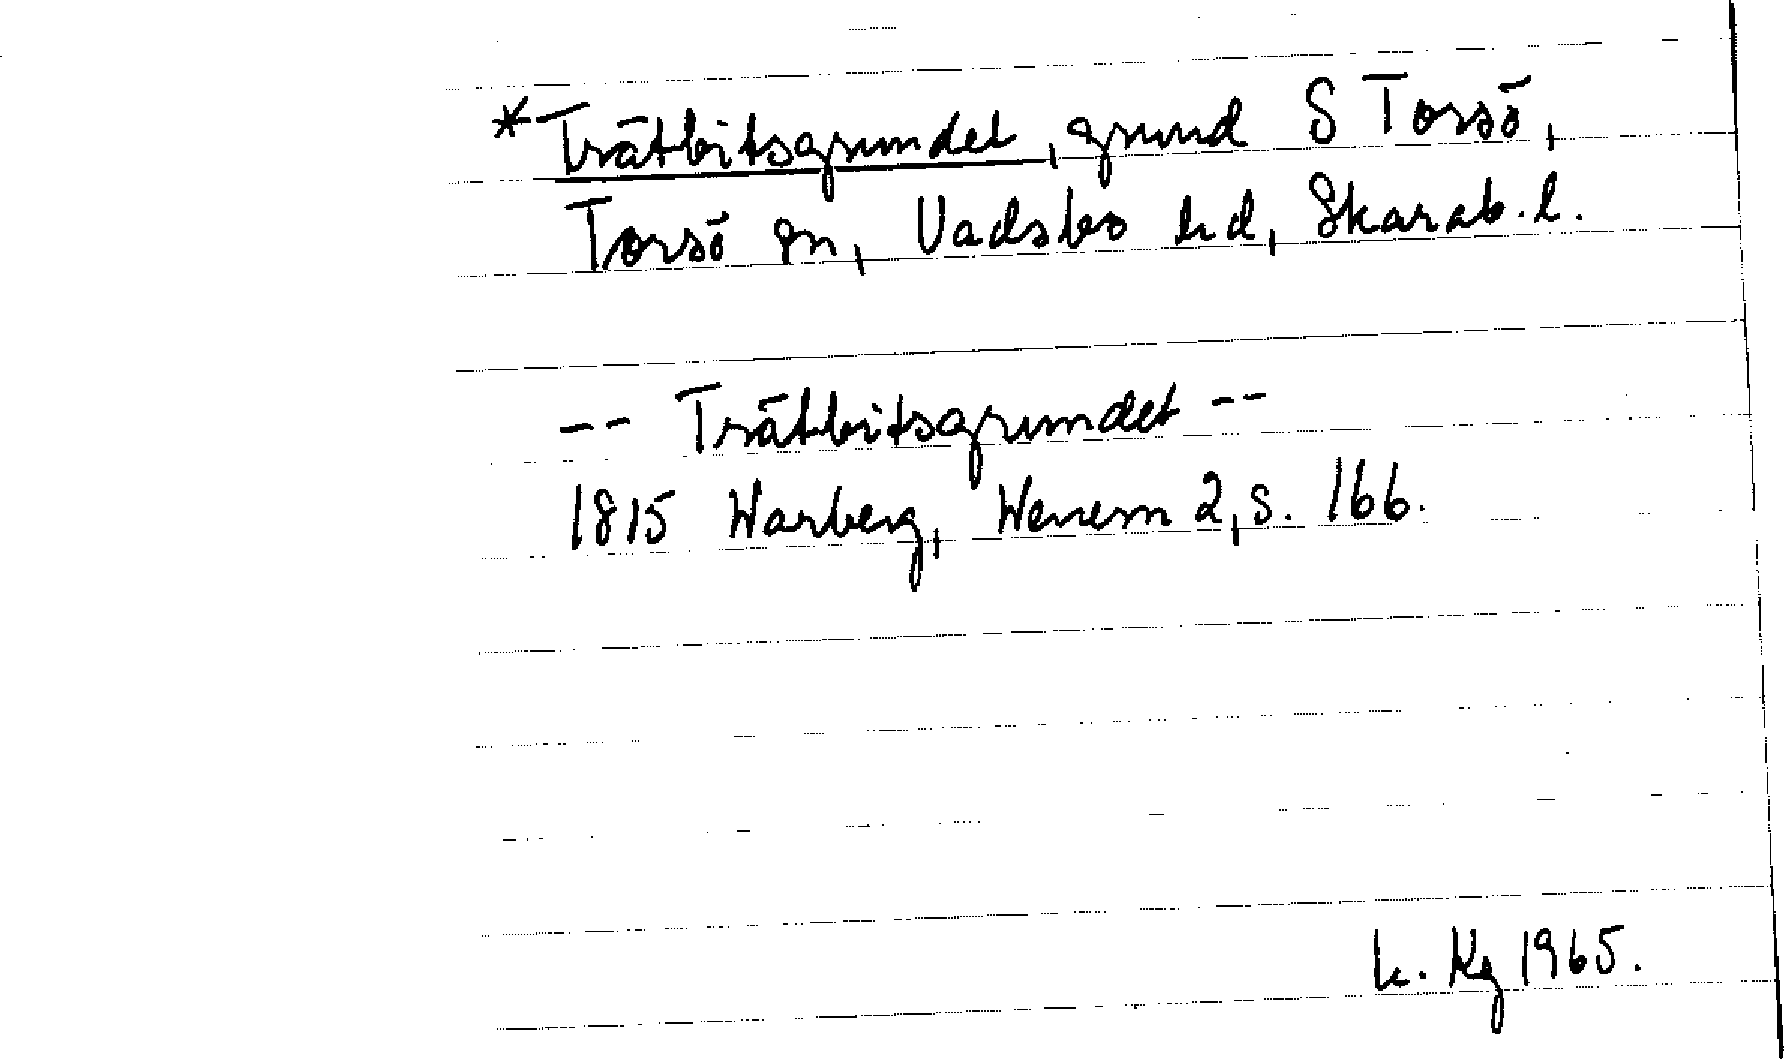 *Trätbitsgrundet, grund S Torsö,
Torsö sn, Vadsbo hd, Skarab. l.
-- Trätbitsgrundet --
1815 Warberg, Wenern 2, s. 166.
1965.